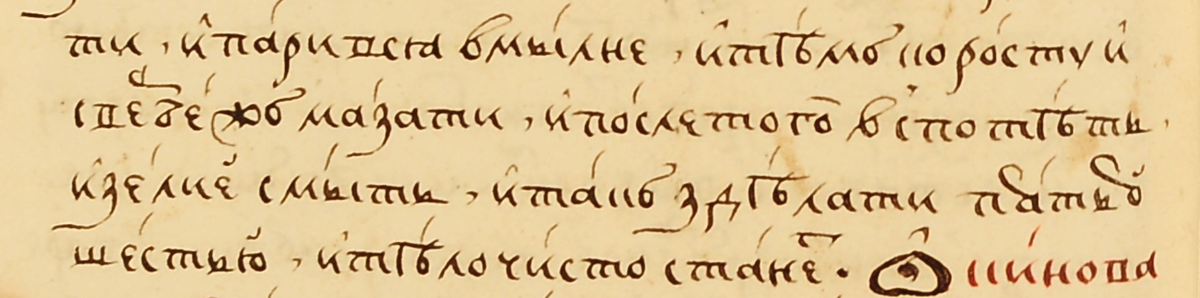 ти , и҆ па́ривсѧ в мы́лне , и҆ тѣ́мъ коро́сту и҆
свеⷬбе́жъ ма́зати , и҆ по́слe того̀ вспотѣ́ть ,
и҆ зе́лие смы́ть , и҆ та́къ здѣ́лати пѧ́тью
ше́стью , и҆ тѣ́ло чи́сто ста́неⷮ . Ѡ҆ ки́нова